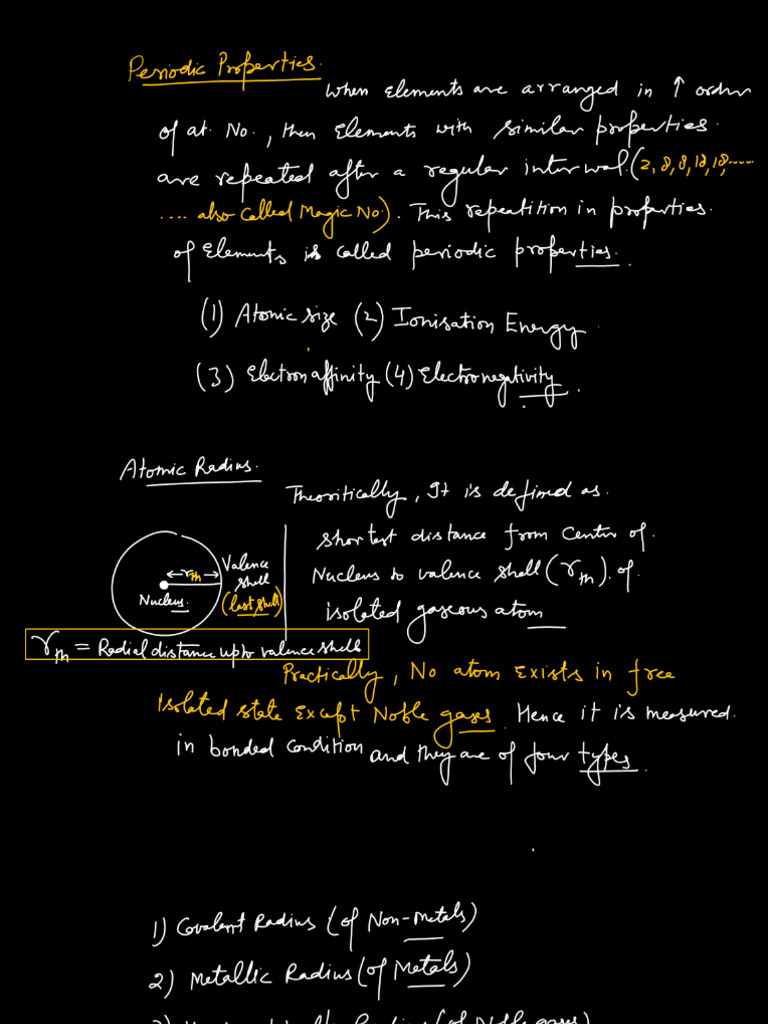 Periodic Properties.
When Elements are arranged in ↑ order
of at. No., then Elements with similar properties.
are repeated after a regular interval. (2, 8, 8, 18, 18, .....
.... also called Magic No.). This repeatition in properties.
of Elements is called periodic properties.
(1) Atomic size (2) Ionisation Energy
(3) Electron affinity (4) Electronegativity.
Atomic Radius.
Theoritically, It is defined as.
shortest distance from Center of.
Nucleus to valence shell (rth). of.
isolated gaseous atom
rth
Valence
shell
(last shell)
Nucleus.
rth = Radial distance upto valence shell
Practically, No atom Exists in free
Isolated state Except Noble gases. Hence it is measured.
in bonded condition and they are of four types.
1) Covalent Radius (of Non-Metals)
2) Metallic Radius (of Metals)